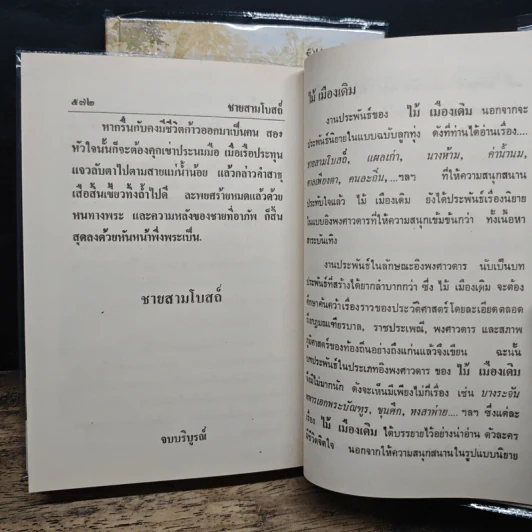 ๕๗๒ ชายสามโบสถ์
หากรื่นกับคงมีชีวิตก้าวออกมาเป็นคน สอง
หัวใจนั้นก็จะต้องคุกเข่าประนมมือ เมื่อเรือประทุน
แจวลับตาไปตามสายแม่น้ำน้อย แล้วกล่าวคำสาธุ
เสือสิ้นเขี้ยวทิ้งถ้ำไปดี ละพยศร้ายหมดแล้วด้วย
หนทางพระ และความหลังของชายที่อาภัพ ก็สิ้น
สุดลงด้วยหันหน้าพึ่งพระเป็น.
ชายสามโบสถ์
จบบริบูรณ์
ไม้ เมืองเดิม
งานประพันธ์ของ ไม้ เมืองเดิม นอกจากจะ
ประพันธ์นิยายในแบบฉบับลูกทุ่ง ดังที่ท่านได้อ่านเรื่อง....
ชายสามโบสถ์, แผลเก่า, นางห้าม, ค่าน้ำนม,
ศาลเพียงตา, คนละถิ่น,....ฯลฯ ที่ให้ความสนุกสนาน
ประทับใจแล้ว ไม้ เมืองเดิม ยังได้ประพันธ์เรื่องนิยาย
ในแบบอิงพงศาวดารที่ให้ความสนุกเข้มข้นกว่า ทั้งเนื้อหา
สาระบันเทิง
งานประพันธ์ในลักษณะอิงพงศาวดาร นับเป็นบท
ประพันธ์ที่สร้างได้ยากลำบากกว่า ซึ่ง ไม้ เมืองเดิม จะต้อง
ศึกษาค้นคว้าเรื่องราวของประวัติศาสตร์โดยละเอียดตลอด
ถึงกฎมณเฑียรบาล, ราชประเพณี, พงศาวดาร และสภาพ
ภูมิศาสตร์ของท้องถิ่นอย่างถึงแก่นแล้วจึงเขียน ฉะนั้น
บทประพันธ์ในประเภทอิงพงศาวดาร ของ ไม้ เมืองเดิม
จึงมีไม่มากนัก ดังจะเห็นมีเพียงไม่กี่เรื่อง เช่น บางระจัน
ทหารเอกพระบัณฑูร, ขุนศึก, หงสาค่าย....ฯลฯ ซึ่งแต่ละ
เรื่อง ไม้ เมืองเดิม ได้บรรยายไว้อย่างน่าอ่าน ตัวละคร
มีชีวิตจิตใจ นอกจากให้ความสนุกสนานในรูปแบบนิยาย